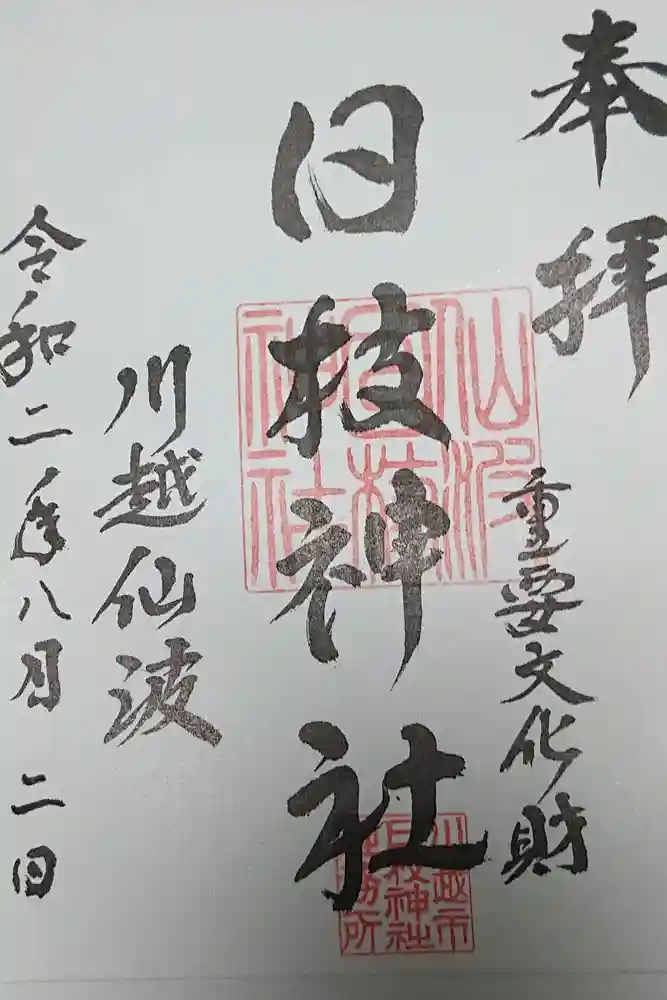 奉拝
重要文化財
日枝神社
仙波
日枝
神社
川越市
日枝神社
社務所
川越仙波
令和二年八月二日